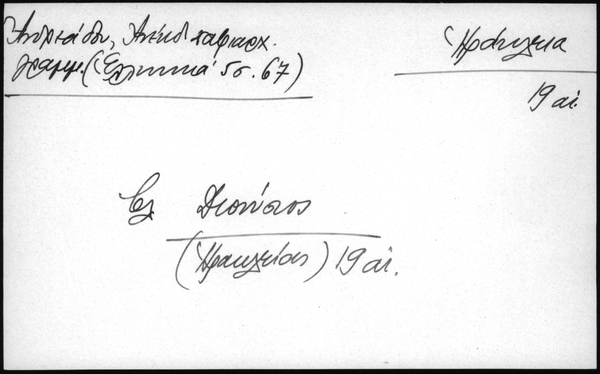 Ἀνδρεάδου, Ἀνέκδ. πατριαρχ.
γράμμ. (Ἑλληνικά 5 σ. 67)
Ἡράκλεια
19 αἰ.
Διονύσιος
(Ἡρακλείας) 19 αἰ.